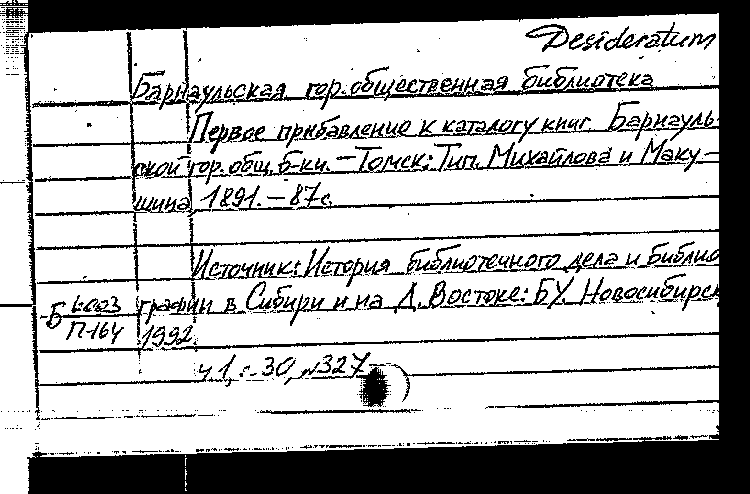 Desideratum
Барнаульская гор. общественная библиотека
Первое прибавление к каталогу книг Барнауль-
ской гор. общ. б-ки. – Томск: Тип. Михайлова и Маку-
шина, 1891. – 87 с.
Источник: История библиотечного дела и библио
графии в Сибири и на Д. Востоке: БУ. Новосибирск
1992.
Б П-164
ч. 1, с. 30, №327